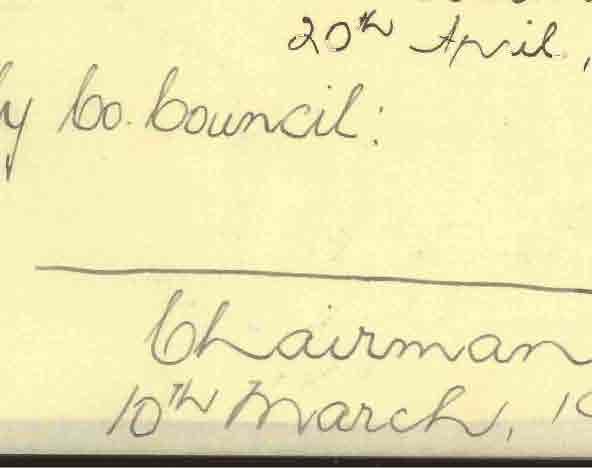 20th April,
y Co. Council:
Chairman
10TH March, 19